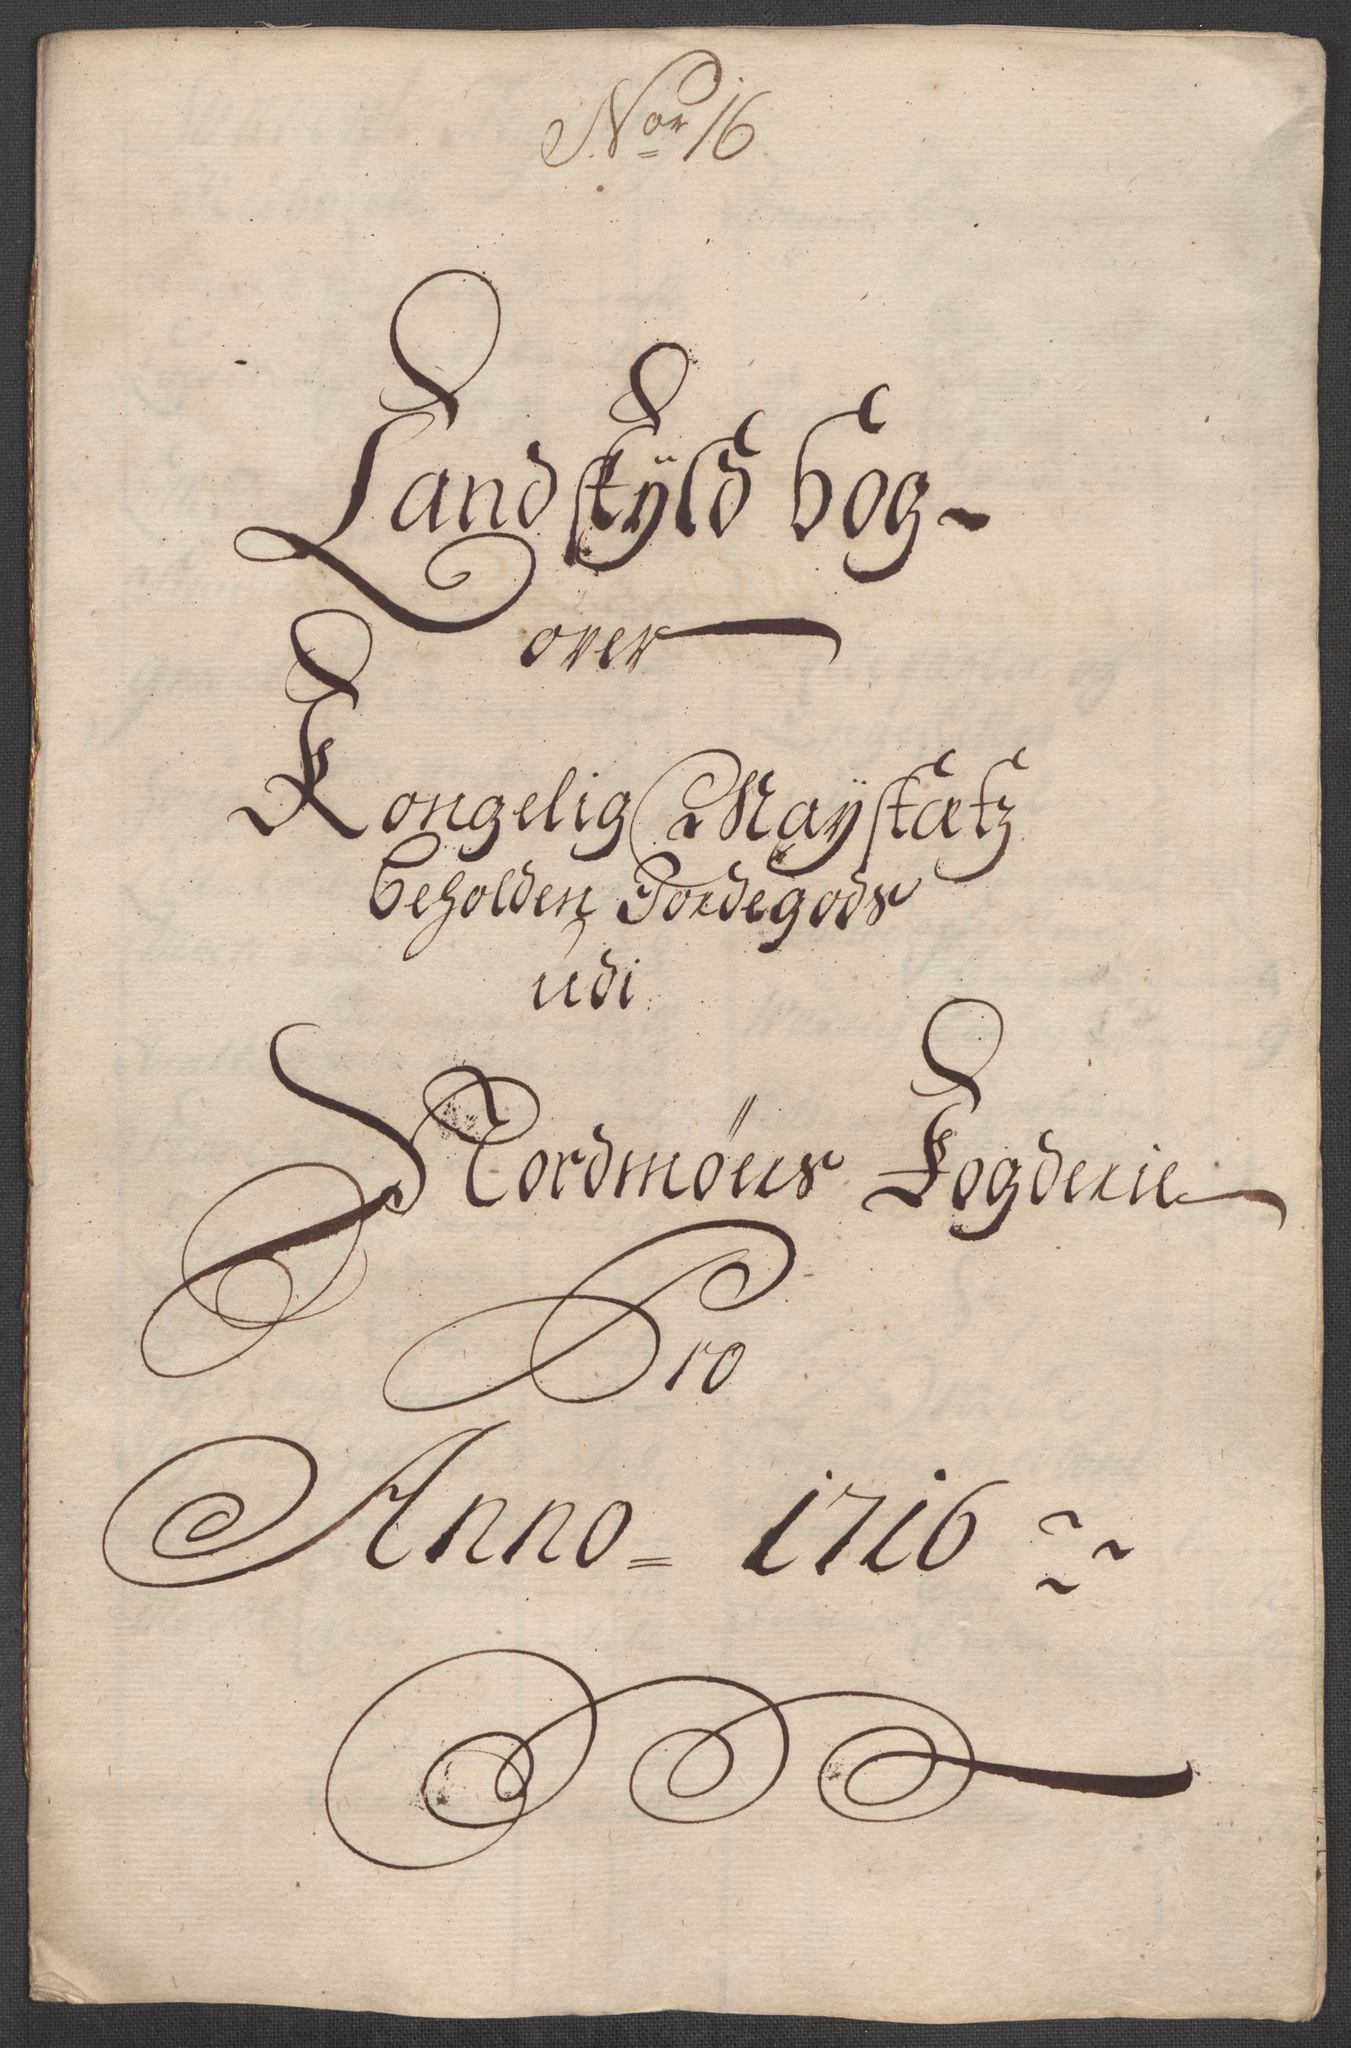 Nor 16
Landskÿld bog
over
Kongelig Maÿstætz
beholden Jordegods
udi
Nordmøers Fogderie
Pro
Anno 1716